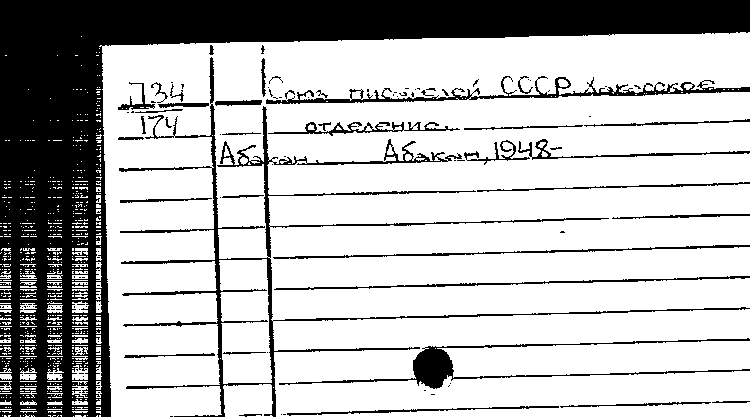 П34 Союз писателей СССР. Хакасское
174 отделение.
Абакан. Абакан, 1948-